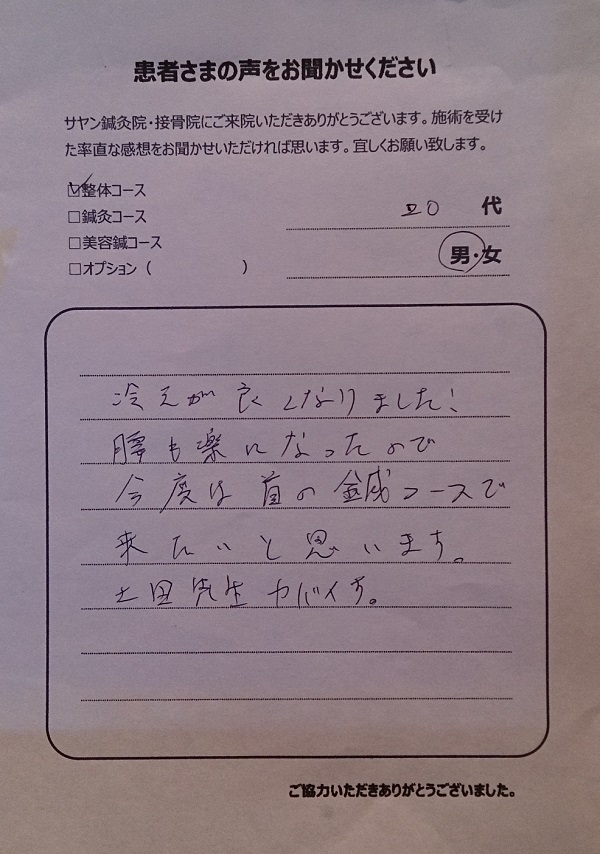 患者さまの声をお聞かせください
サヤン鍼灸院・接骨院にご来院いただきありがとうございます。施術を受け
た率直な感想をお聞かせいただければ思います。宜しくお願い致します。
☑整体コース
□鍼灸コース
□美容鍼コース
□オプション（　　　　　　）
代
男・女
冷えが良くなりました!
腰も楽になったので
今度は首の鍼コースで
来たいと思います。
土田先生ヤバイす。
ご協力いただきありがとうございました。